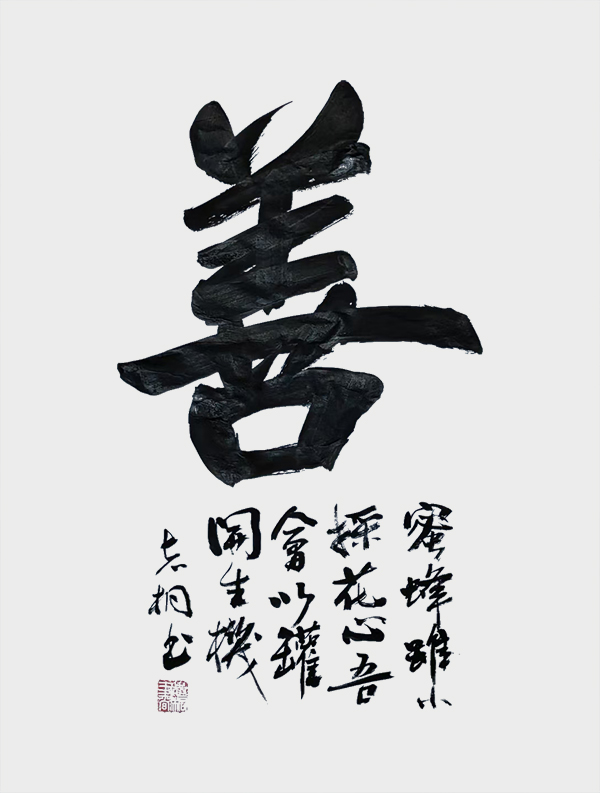 善
蜜蜂雖小
採花心吾
會以罐
開生機
志桐书